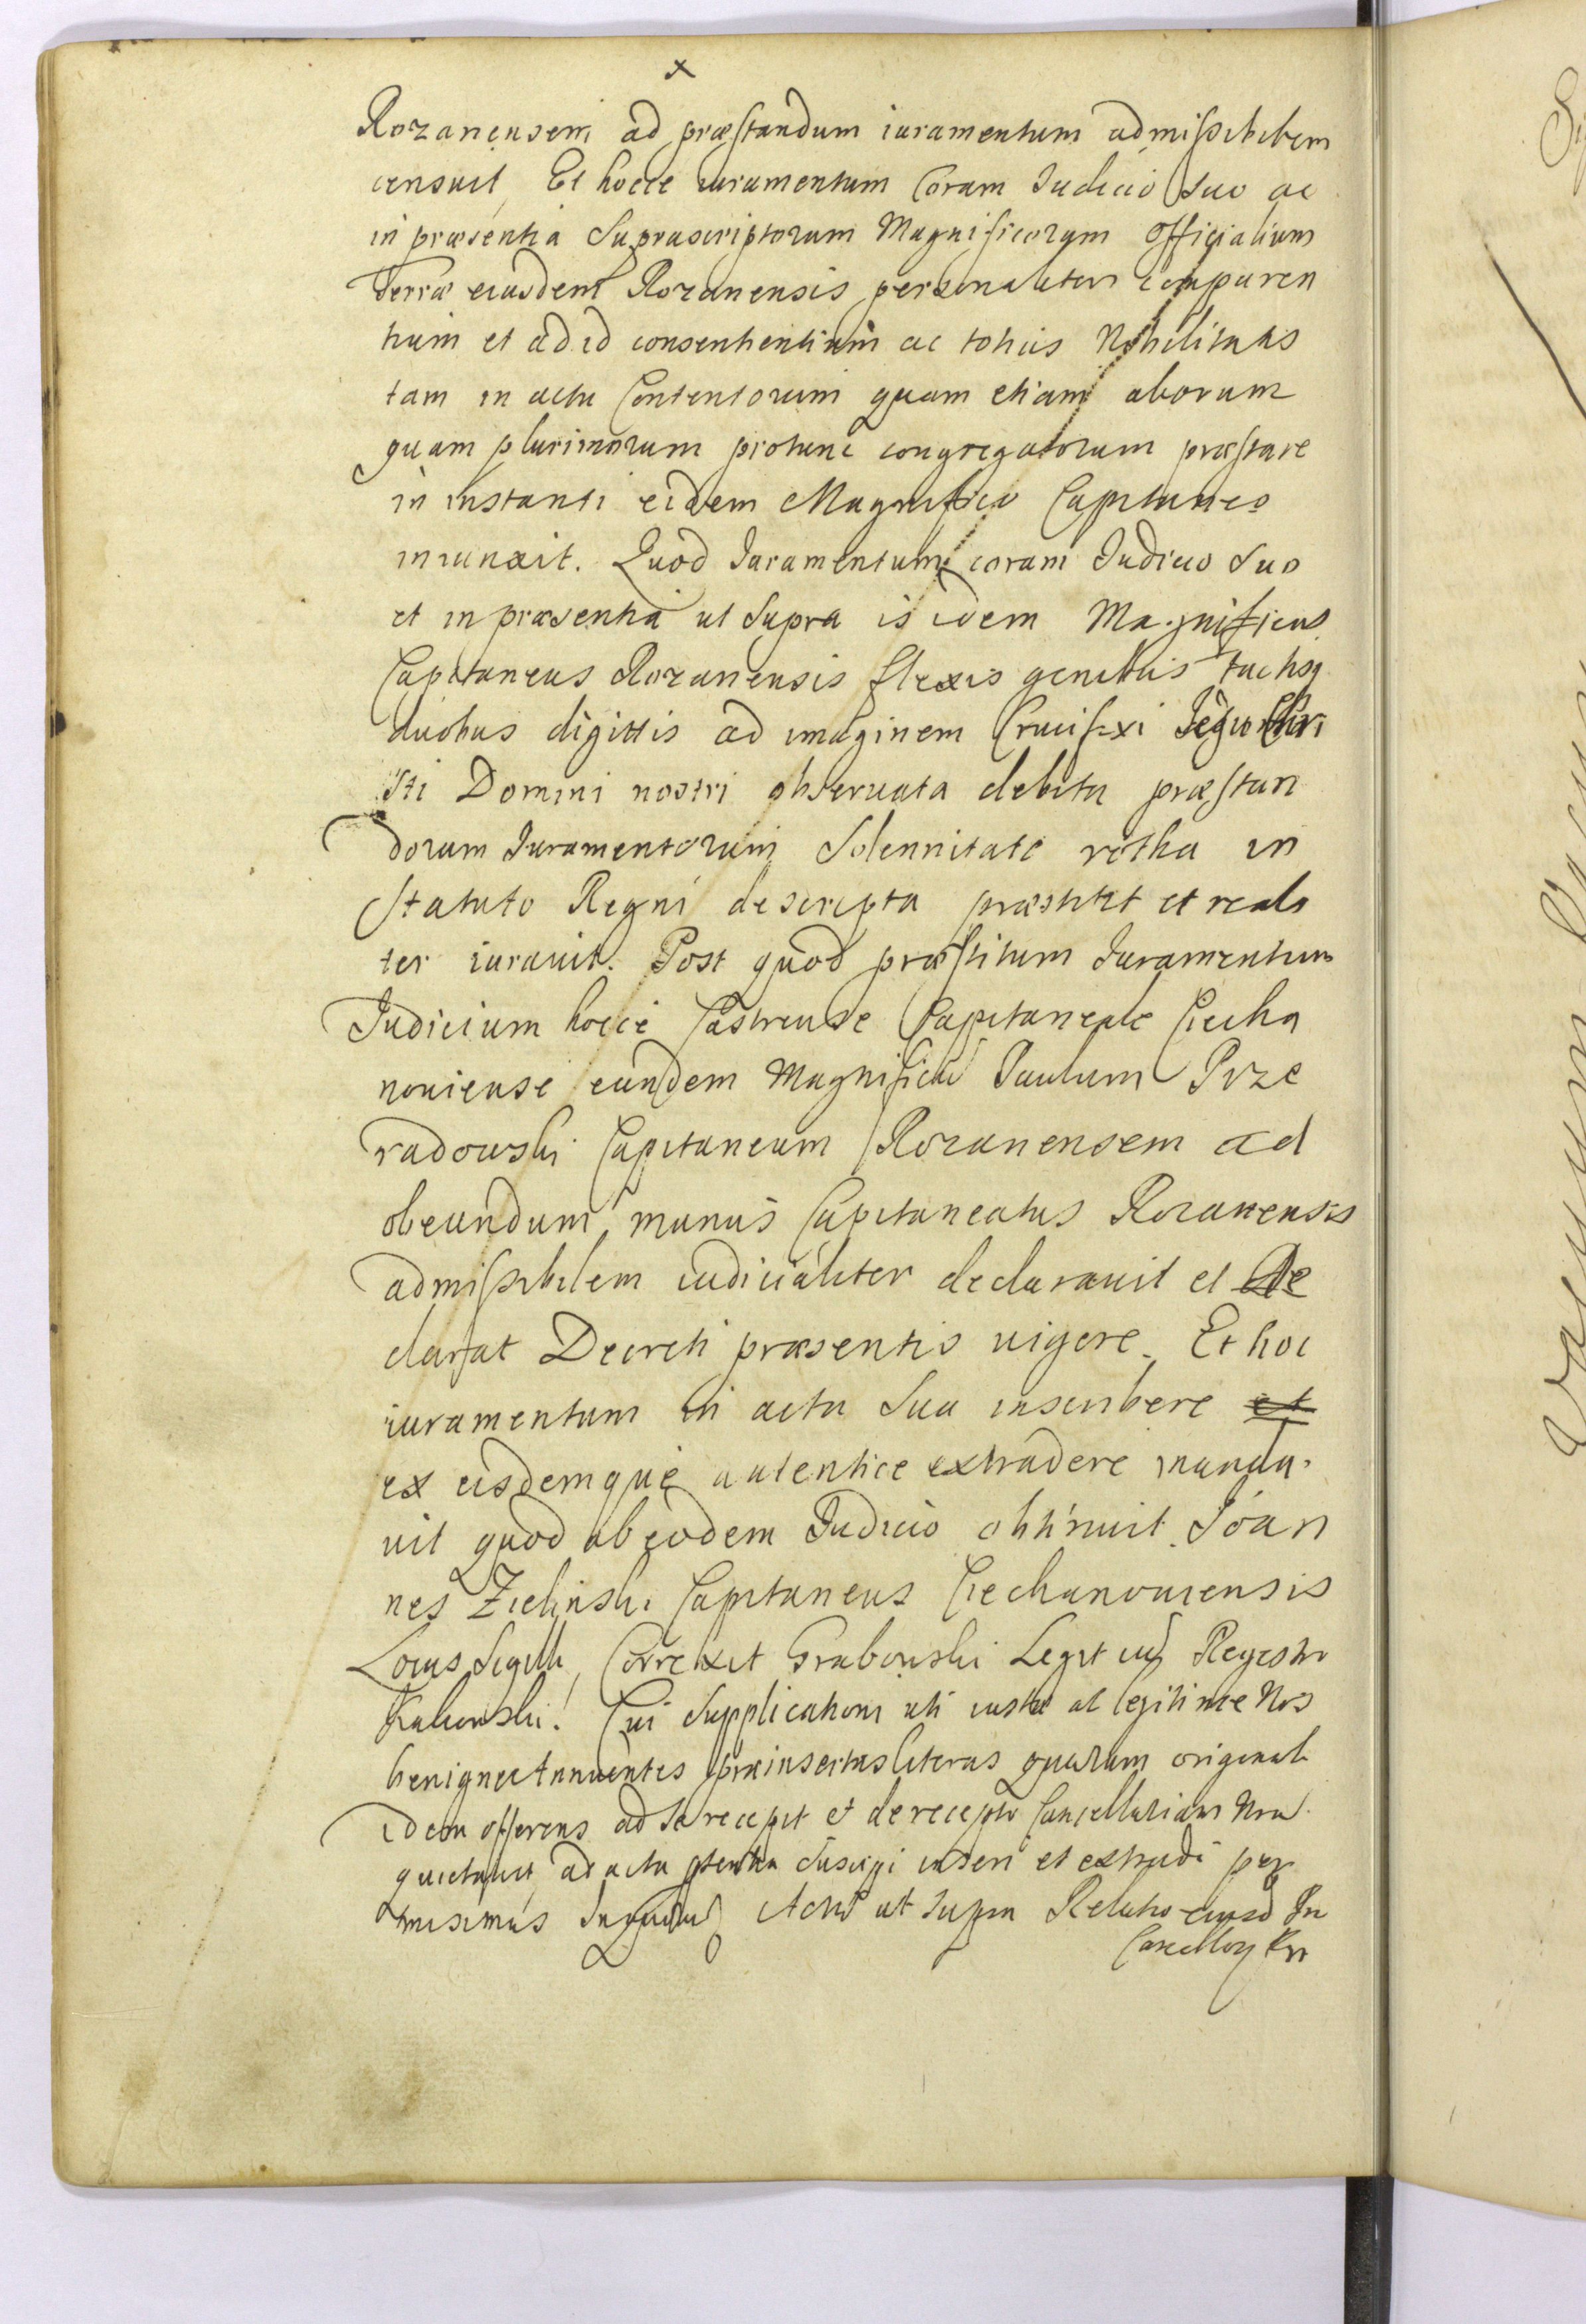 x
Rozanensem ad præstandum iuramentum admissibilem
censuit, Et hocce iuramentum Coram Iudicio Suo ac
in præsentia Suprascriptorum Magnificorum Officialium
Terræ eiusdem Rozanensis personaliter comparen
tium et ad id consentientium ac totius Nobilitatis
tam in actu Contentorum quam etiam aliorum
quam plurimorum protunc congregatorum præstare
in instanti eidem Magnifico Capitaneo
iniunxit. Quod Iuramentum coram Iudicio Suo
et in præsentia ut Supra is idem Magnificus
Capitaneus Rozanensis flexis genibus tactisq
duobus digittis ad imaginem Crucifixi Iesu Chri
sti Domini nostri observata debita præstan
dorum Iuramentorum Solennitate rotha in
Statuto Regni descripta præstitit et reali
ter iuravit. Post quod præstitum Iuramentum
Iudicium hocce Castrense Capitaneale Ciecha
noviense eundem Magnificu Paulum Prze
radowski Capitaneum Rozanensem ad
obeundum munus Capitaneatus Rozanensis
admissibilem iudicialiter declaravit et de
clarat Decreti præsentis vigore. Et hoc
iuramentum in acta Sua inscribere et
ex eisdemque autentice extradere manda
vit quod ab eodem Iudicio obtinuit. Ioan
nes Zielinski Capitaneus Ciechanoviensis
Locus Sigilli, Correxit Grabowski Legit cu Regestro
Cui Supplicationi uti iustæ ac legitimæ Nos
benigne Annuentes præinsertas literas quarum originale
idem offerens ad se recepit et de recepto Cancellariam Nra
quietavit, ad acta Suscipi inseri et extradi per
misimus Actu ut supra Relatio eiusd